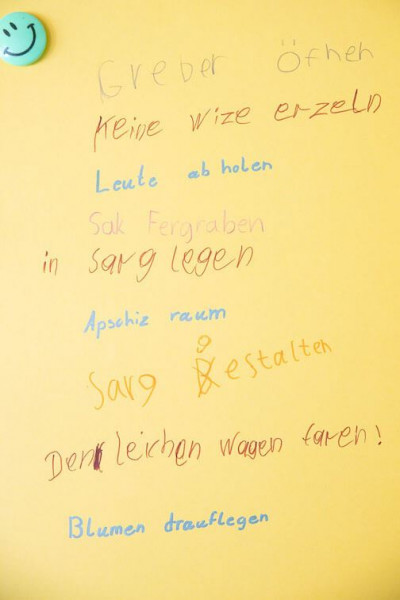 Greber Öfnen
Keine wize erzeln
Leute ab holen
Sak Fergraben
in sarg legen
Apschiz raum
Sarg gestalten
Den leichen wagen faren!
Blumen drauflegen